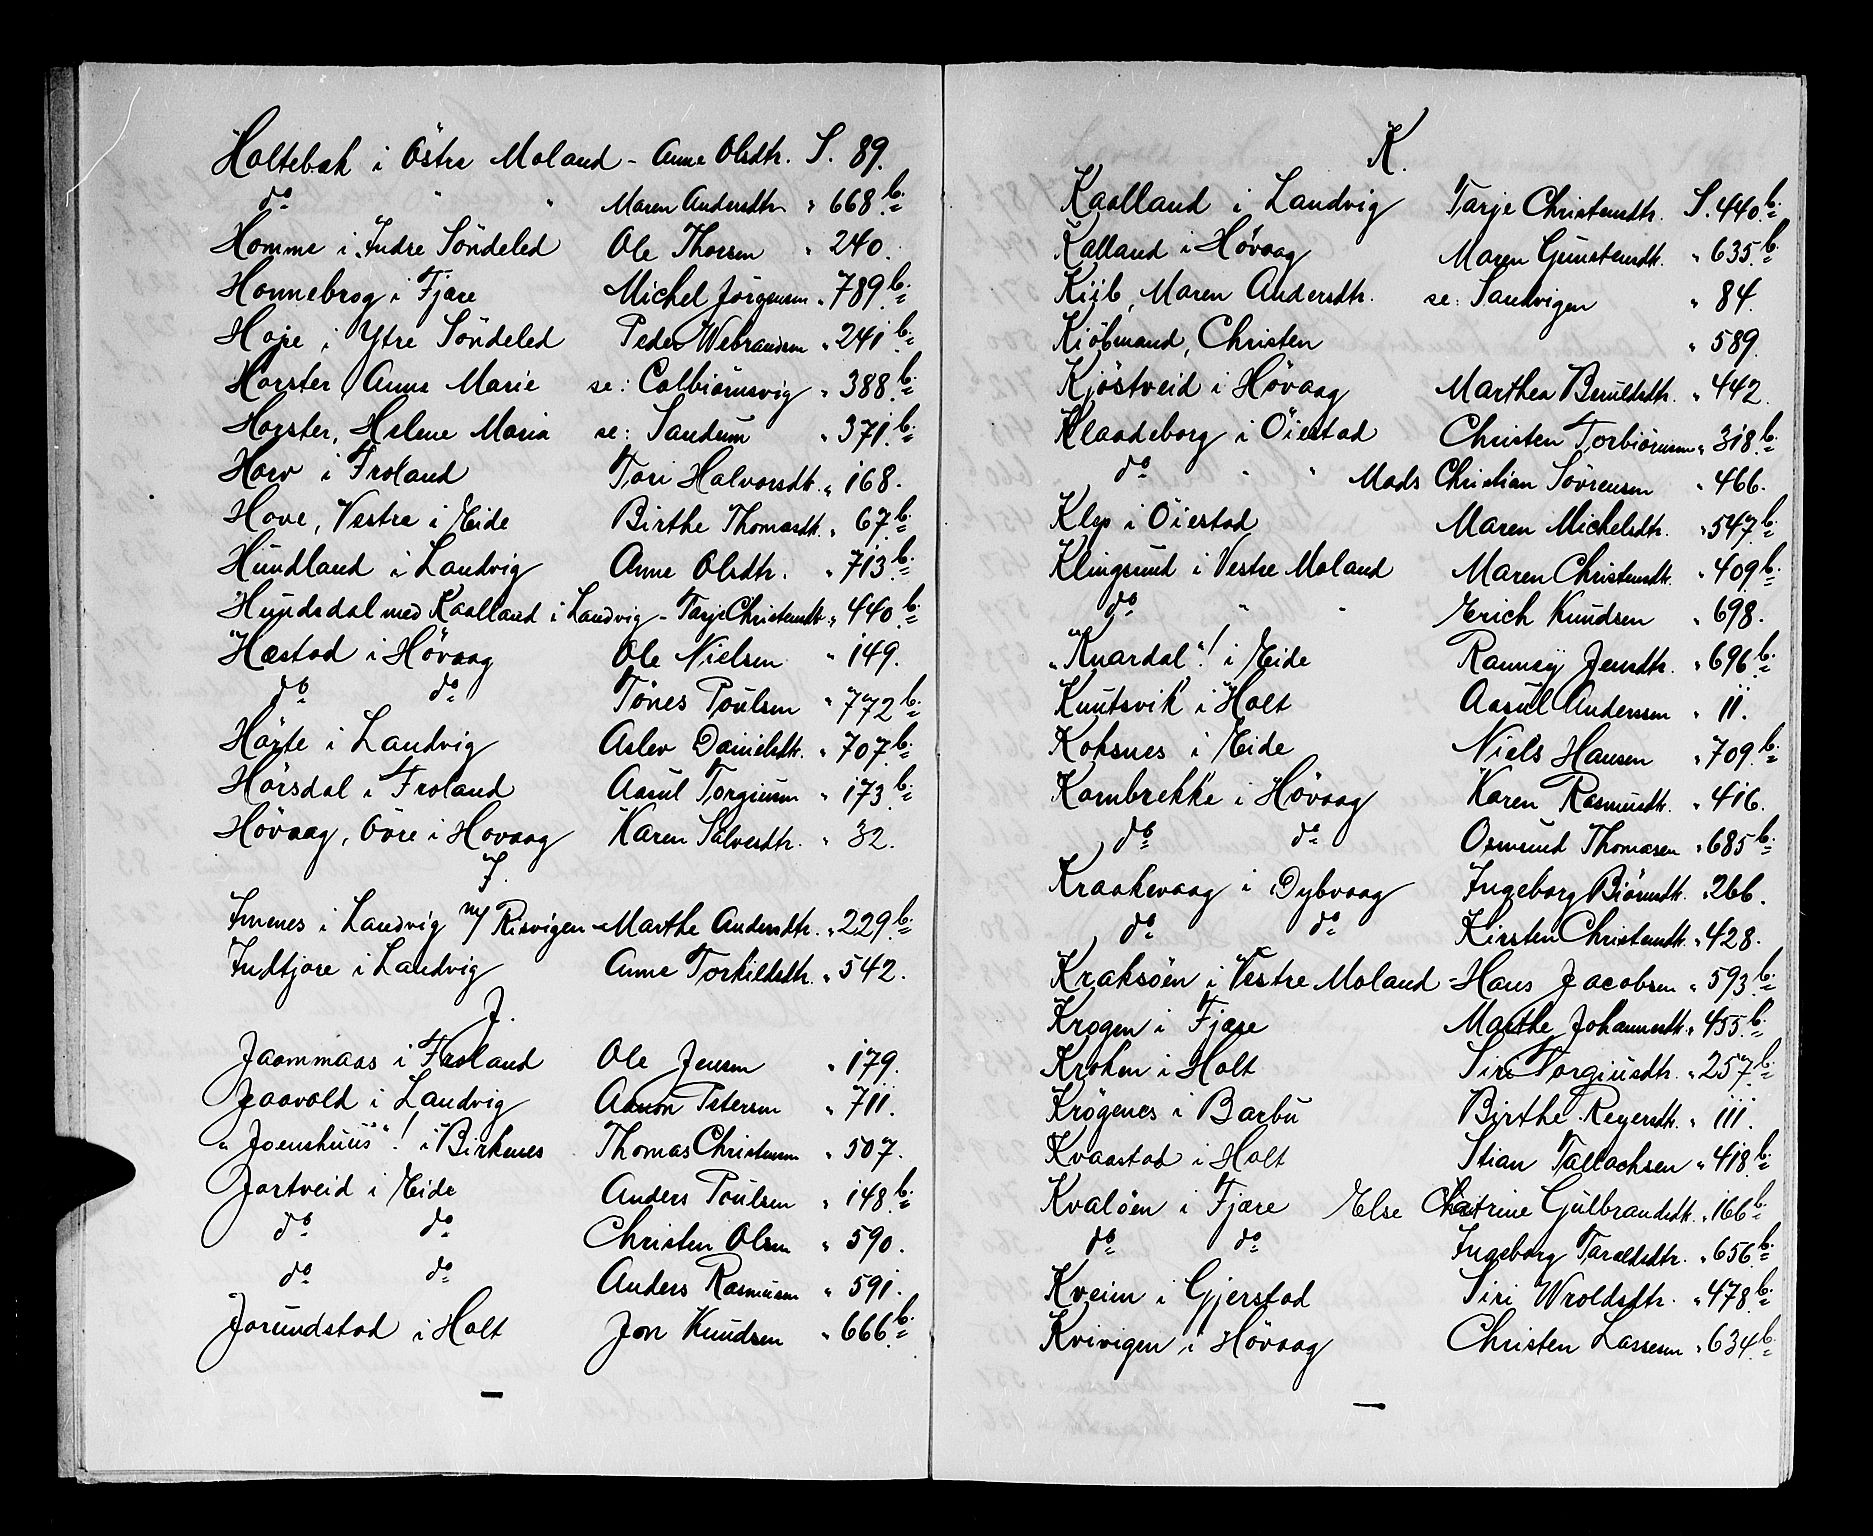 Holtebak i Östre Moland - Anne Olsdtr. S. 89.
do " " Maren Andersdtr. " 668 b.
Homme i Indre Söndeled Ole Thorsen " 240.
Honnebrog i Fjære Michel Jörgensen " 789 b.
Hope i Ytre Söndeled Peder Webrandsen " 241 b.
Horster, Anne Marie se: Colbiörnsvig " 388 b.
Horster, Helene Maria se: Sandum " 371 b.
Horv i Froland Tori Halvorsdtr. " 168.
Hove, Vestre i Eide Birthe Thomasdtr. " 67 b.
Hundland i Landvig Anne Olsdtr. " 713 b.
Hundsdal med Kaalland i Landvig - Tarje Christensdtr. " 440 b.
Hæstad i Hövaag Ole Nielsen " 149.
do do Tönes Poulsen " 772 b.
Hörte i Landvig Aslev Danielsdtr. " 707 b.
Hörsdal i Froland Aasul Torgiusen " 173 b.
Hövaag, Övre i Hövaag Karen Salvesdtr. " 32.
I.
Imenes i Landvig m/ Risvigen - Marthe Andersdtr. " 229 b.
Indtjore i Landvig Anne Torkildsdtr. " 542.
J.
Jaammaas i Froland Ole Jensen " 179.
Jaavold i Landvig Aanon Petersen " 711.
"Joenshuus"! i Birkenes Thomas Christensen " 507.
Jortveid i Eide Anders Poulsen " 148 b.
do do Christen Olsen " 590.
do do Anders Rasmusen " 591.
Jorundstad i Holt Jon Knudsen " 666 b.
K.
Kaalland i Landvig Tarje Christensdtr. S. 440 b.
Kalland i Hövaag Maren Gunstensdtr. " 635 b.
Kiib, Maren Andersdtr. se: Sandvigen " 84.
Kiöbmand, Christen " 589.
Kjöstveid i Hövaag Marthea Beruldsdtr. " 442.
Klaadeborg i Öiestad Christen Torbiörnsen " 318 b.
do " " Mads Christian Sövrensen " 466.
Klep i Öiestad Maren Michelsdtr. " 547 b.
Klingsund i Vestre Moland Maren Christensdtr. " 409 b.
do " " Erich Knudsen " 698.
"Knardal"! i Eide Ranney Jensdtr. " 696 b.
Knutsvik i Holt Aasul Anderssen " 11.
Koksnes i Eide Niels Hansen " 709 b.
Kornbrekke i Hövaag Karen Rasmusdtr. " 416.
do do Osmund Thomasen " 685 b.
Kraakevaag i Dybvaag Ingeborg Biörnsdtr. " 266.
do do Kirsten Christensdtr. " 428.
Kraksöen i Vestre Moland - Hans Jacobsen " 593 b.
Krogen i Fjære Marthe Johannesdtr. " 455 b.
Kroken i Holt Siri Torgiusdtr. " 257 b.
Krögenes i Barbu Birthe Reyersdtr. " 111.
Kvaastad i Holt Stian Tallachsen " 418 b.
Kvalöen i Fjære Else Catrine Gulbrandsdtr. " 166 b.
do do Ingeborg Taraldsdtr. " 656 b.
Kveim i Gjerstad Siri Wroldsdtr. " 478 b.
Kvivigen i Hövaag Christen Lassesen " 634 b.